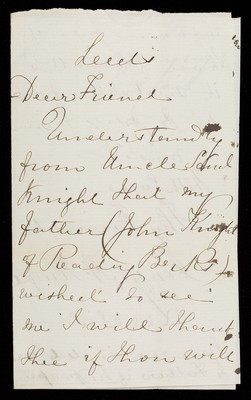 Leeds
Dear Friend
Understanding
from Uncle Saml
Knight that my
father (John Knight
of Reading Berks)
wished to see
me I will thank
thee if thou will